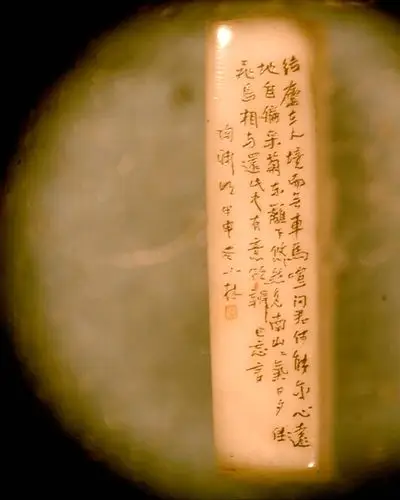 结廬在人境而無車馬喧问君何能尔心遠
地自偏采菊東籬下悠然見南山〻氣日夕佳
飛鳥相与還此有意欲辯已忘言
陶渊明甲申小